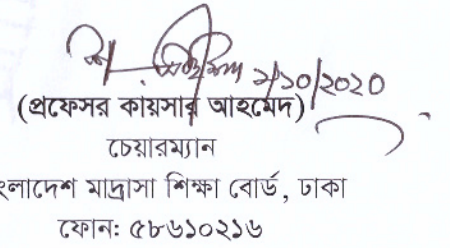 ২/১০/২০২০
(প্রফেসর কায়সার আহমেদ)
চেয়ারম্যান
ংলাদেশ মাদ্রাসা শিক্ষা বোর্ড, ঢাকা
ফোন: ৫৮৬১০২১৬